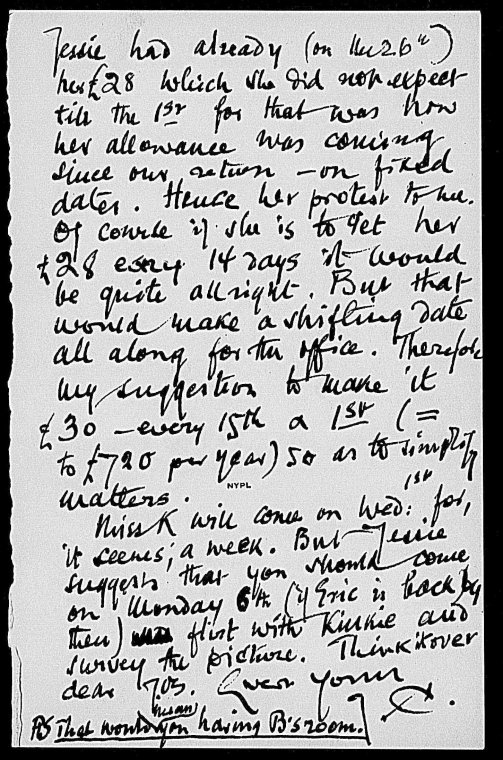 Jessie had already (on the 26th)
her £28 which she did not expect
till the 1st for that was how
her allowance was coming
since our return – on fixed
dates. Hence her protest to me.
Of course if she is to get her
£28 every 14 days it would
be quite allright. But that
would make a shifting date
all along for the office. Therefore
my suggestion to make it
£30 – every 15th & 1st (=
to £720 per year) so as to simplify
matters.
NYPL
Miss K will come on Wed: 1st for,
it seems, a week. But Jessie
suggests that you should come
on Monday 6th (if Eric is back by
then) flirt with Kinkie and
survey the picture. Think it over
dear
Ever yours
C.
PS That would mean you having B's room.